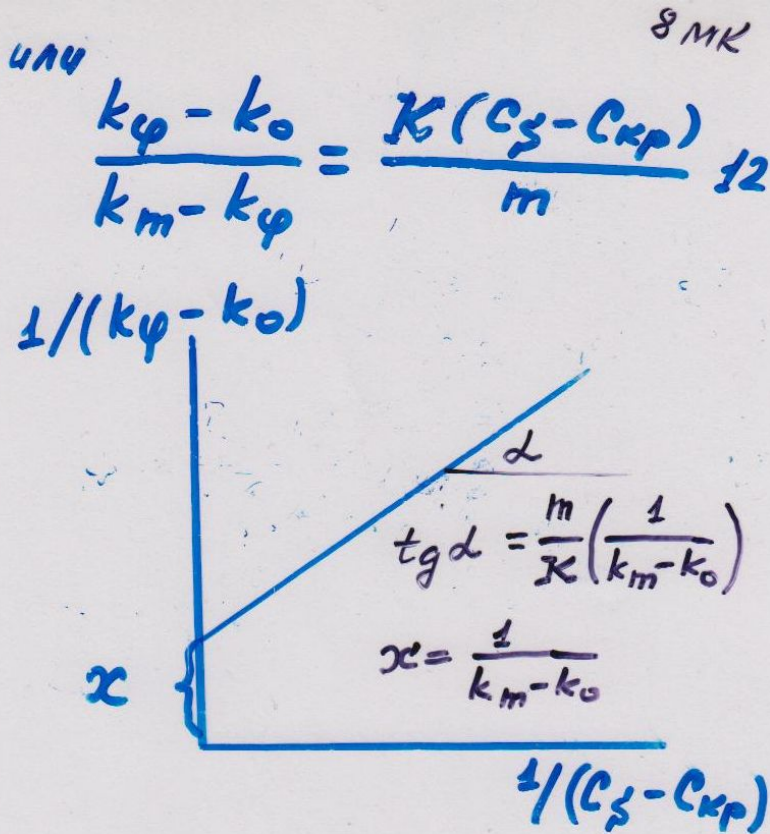 8 МК
или
(kφ - k₀)/(kₘ - kφ) = К(Cₛ - Cкр)/m 12
1/(kφ - k₀)
α
tg α = m/К (1/(kₘ - k₀))
x = 1/(kₘ - k₀)
x
1/(Cₛ - Cкр)